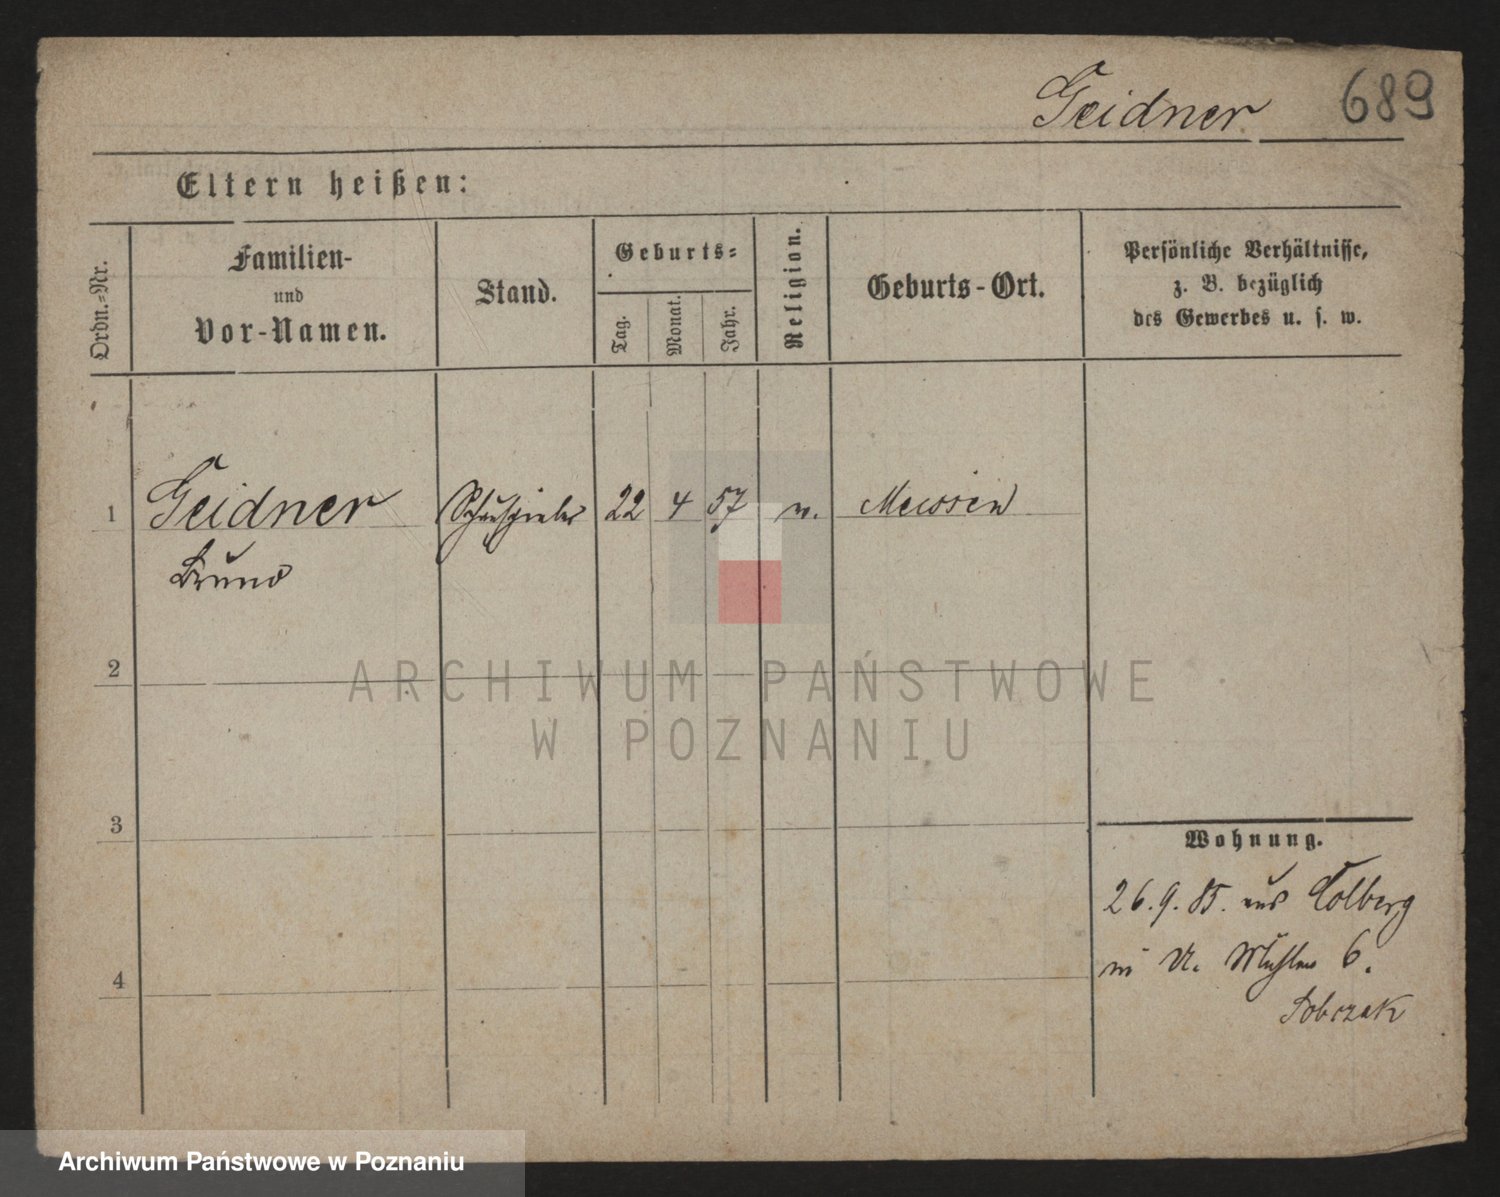 Geidner 689
Eltern heißen:
Ordn.=Nr.
Familien-
und
Vor-Namen.
Stand.
Geburts=
Tag.
Monat.
Jahr.
Religion.
Geburts-Ort.
Persönliche Verhältnisse,
z. B. bezüglich
des Gewerbes u. s. w.
1 Geidner Schauspieler 22 4 57 Meissen
Bruno
2
ARCHIWUM PAŃSTWOWE
W POZNANIU
3
Wohnung.
26.9.85. aus Colberg
Mühlen 6.
4
Sobczak
Archiwum Państwowe w Poznaniu